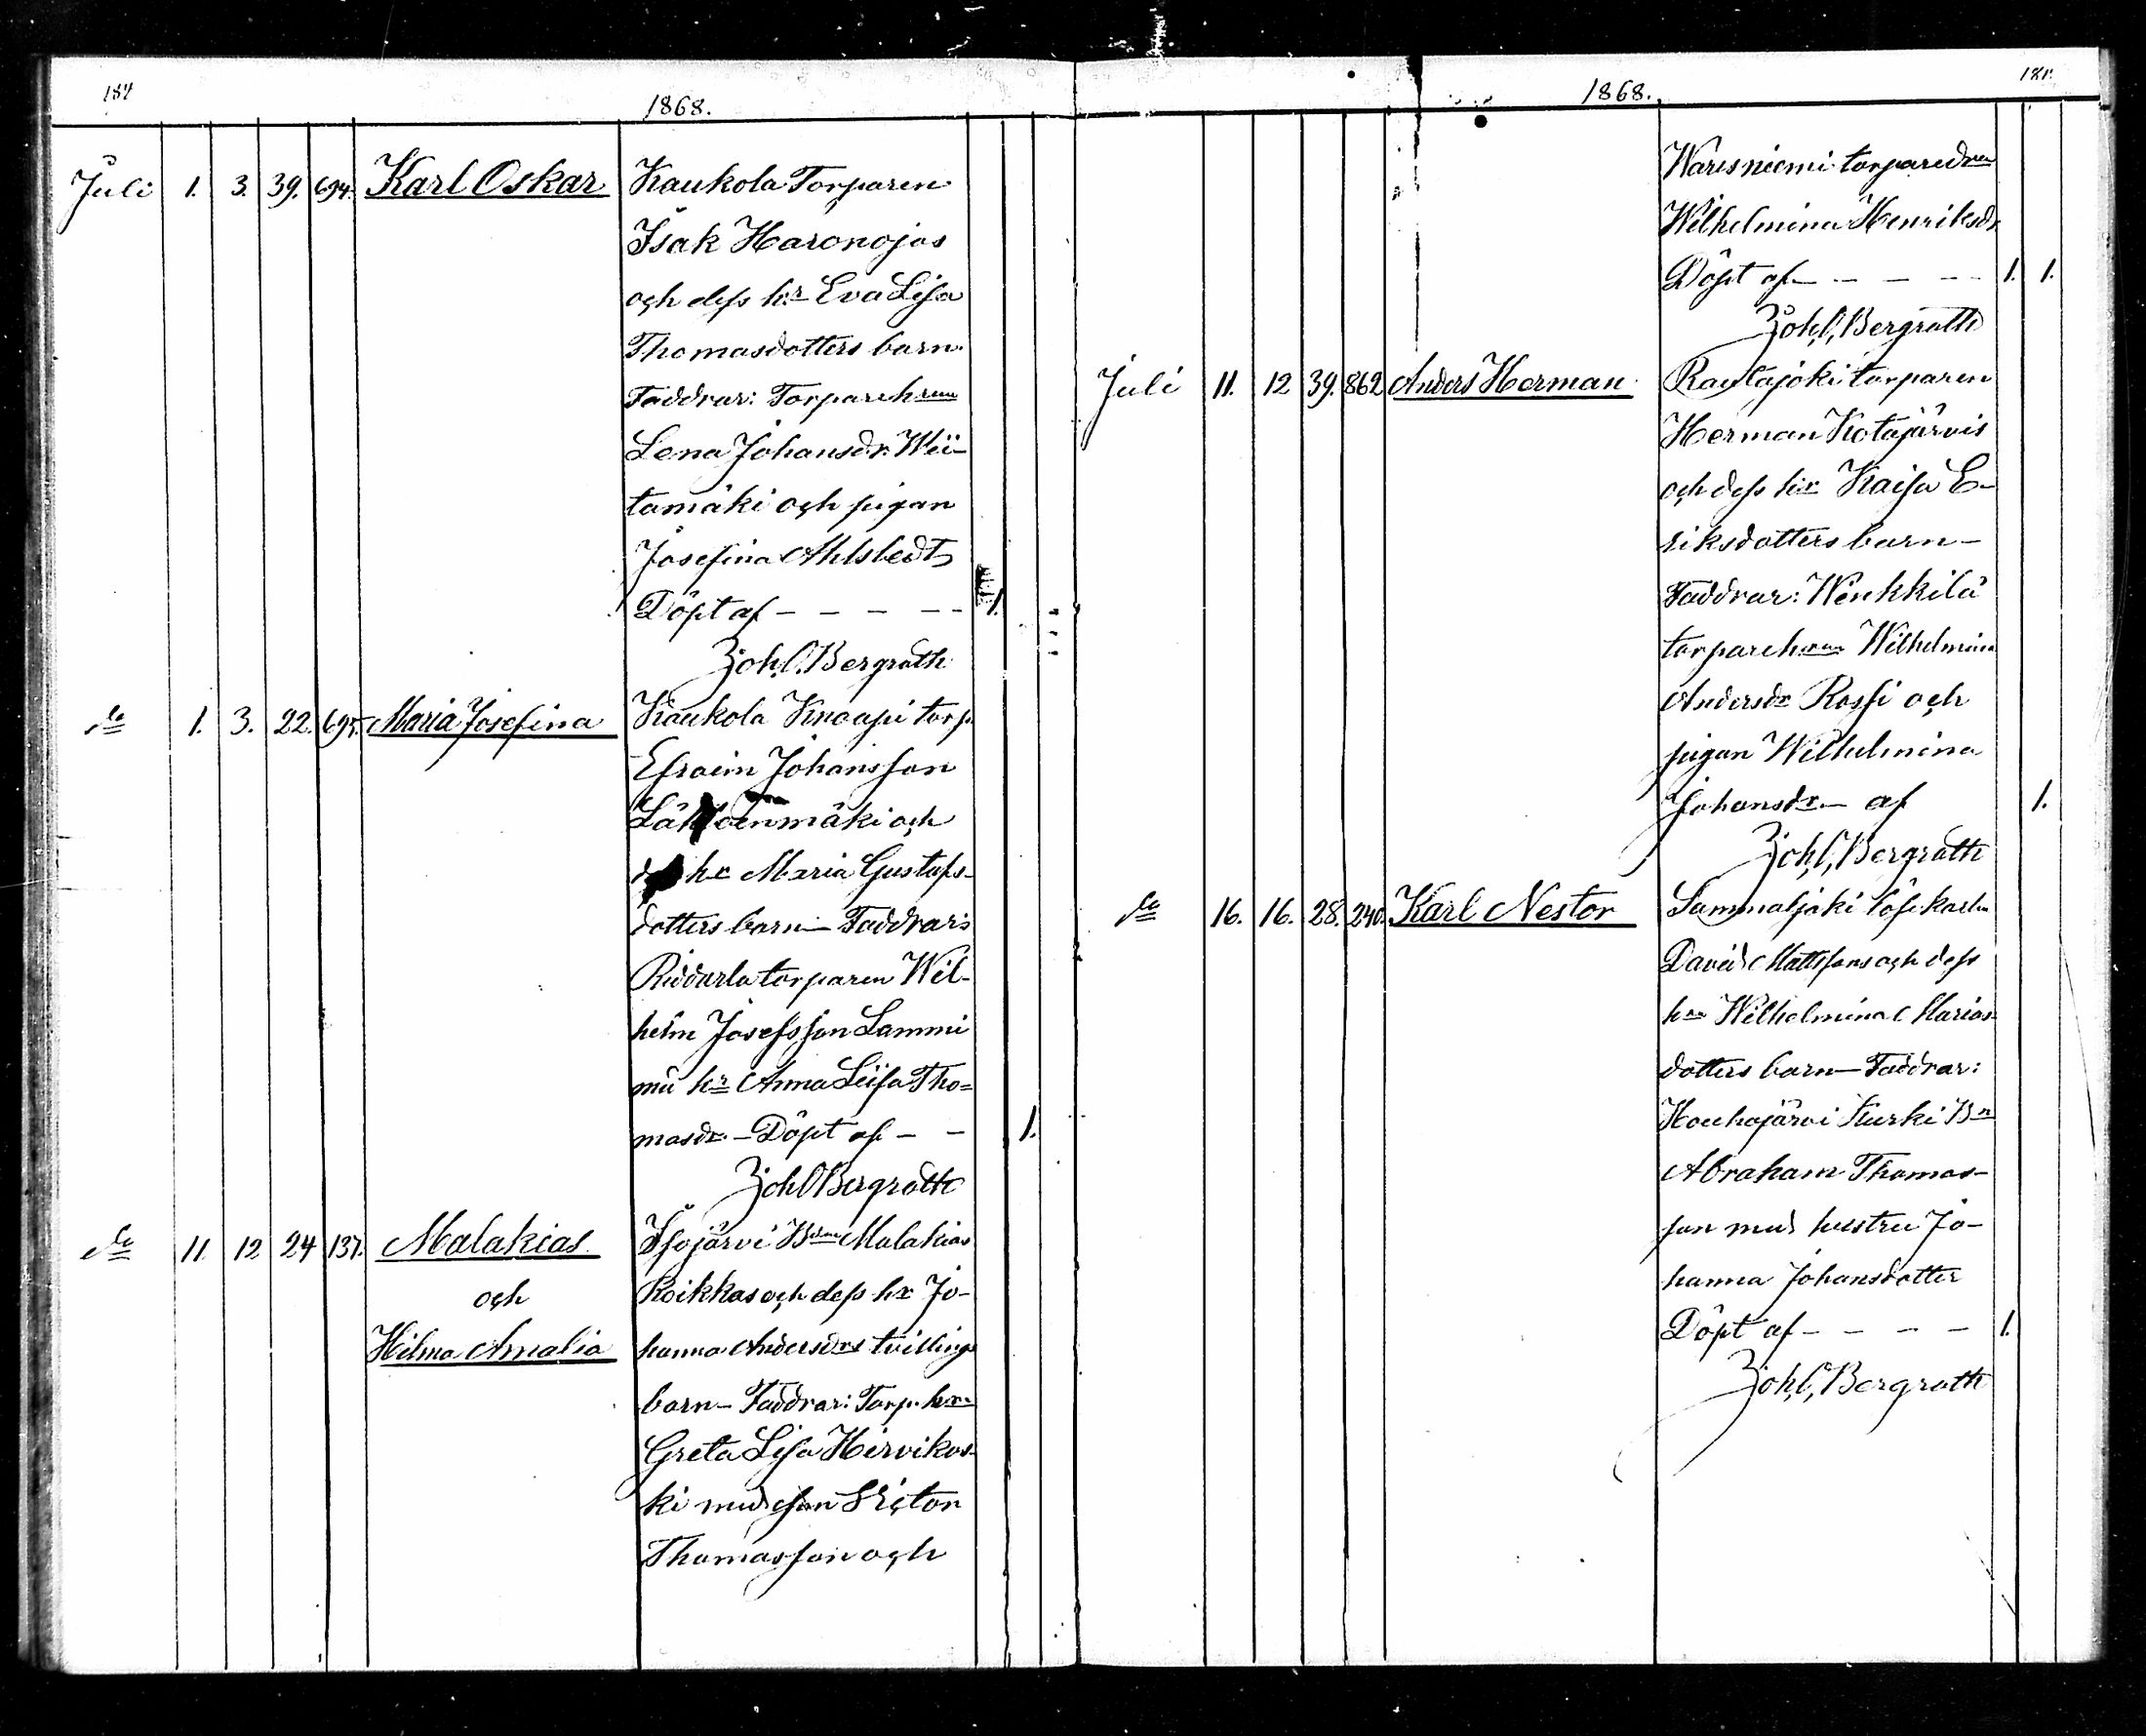 184
1868.
Juli 1. 3. 39. 694. Karl Oskar Kaukola Torparen
Isak Haronojas
och dess hr Eva Lisa
Thomasdotters barn.
Faddrar: Torpareh
Lena Johansdr. Wii-
tamäki och pigan
Josefina Ahlstedt
Döpt af - - - - - 1.
Joh. C. Bergroth
do 1. 3. 22. 695. Maria Josefina Kaukola Knaapi torp.
Efraim Johansson
Lähteenmäki och
hr Maria Gustafs-
dotters barn - Faddrar:
Riddarla torparen Wil-
helm Josefsson Lammi
mä hr Anna Liisa Tho=
masdr. - Döpt af - - 1.
Joh C Bergroth
do 11. 12 24 137. Malakias Isojärvi Malakias
och Roikkas och dess hr Jo-
Hilma Amalia hanna Andersdrs tvilling
barn - Faddrar: Torp. hr
Greta Lisa Hirvikos-
ki med son Victor
Thomasson och
1868.
181.
Waresniemi torparedra
Wilhelmina Henriksdr
Döpt af - - - - - 1. 1.
Joh. C. Bergroth
Juli 11. 12 39. 862 Anders Herman Rautajoki torparen
Herman Kotajärvis
och dess hr Kaisa E-
riksdotters barn -
Faddrar: Wenkkilä
torpareh Wilhelmina
Andersdr Rossi och
pigan Wilhelmina
Johansdr - af 1.
Joh. C. Bergroth
do 16. 16. 28. 240. Karl Nestor Sammaljoki löskarln
David Mattssons och dess
hru Wilhelmina Marias-
dotters barn - Faddrar:
Houhajärvi Kurki Bn
Abraham Thomas-
son med hustru Jo-
hanna Johansdotter
Döpt af - - - - 1.
Joh. C. Bergroth